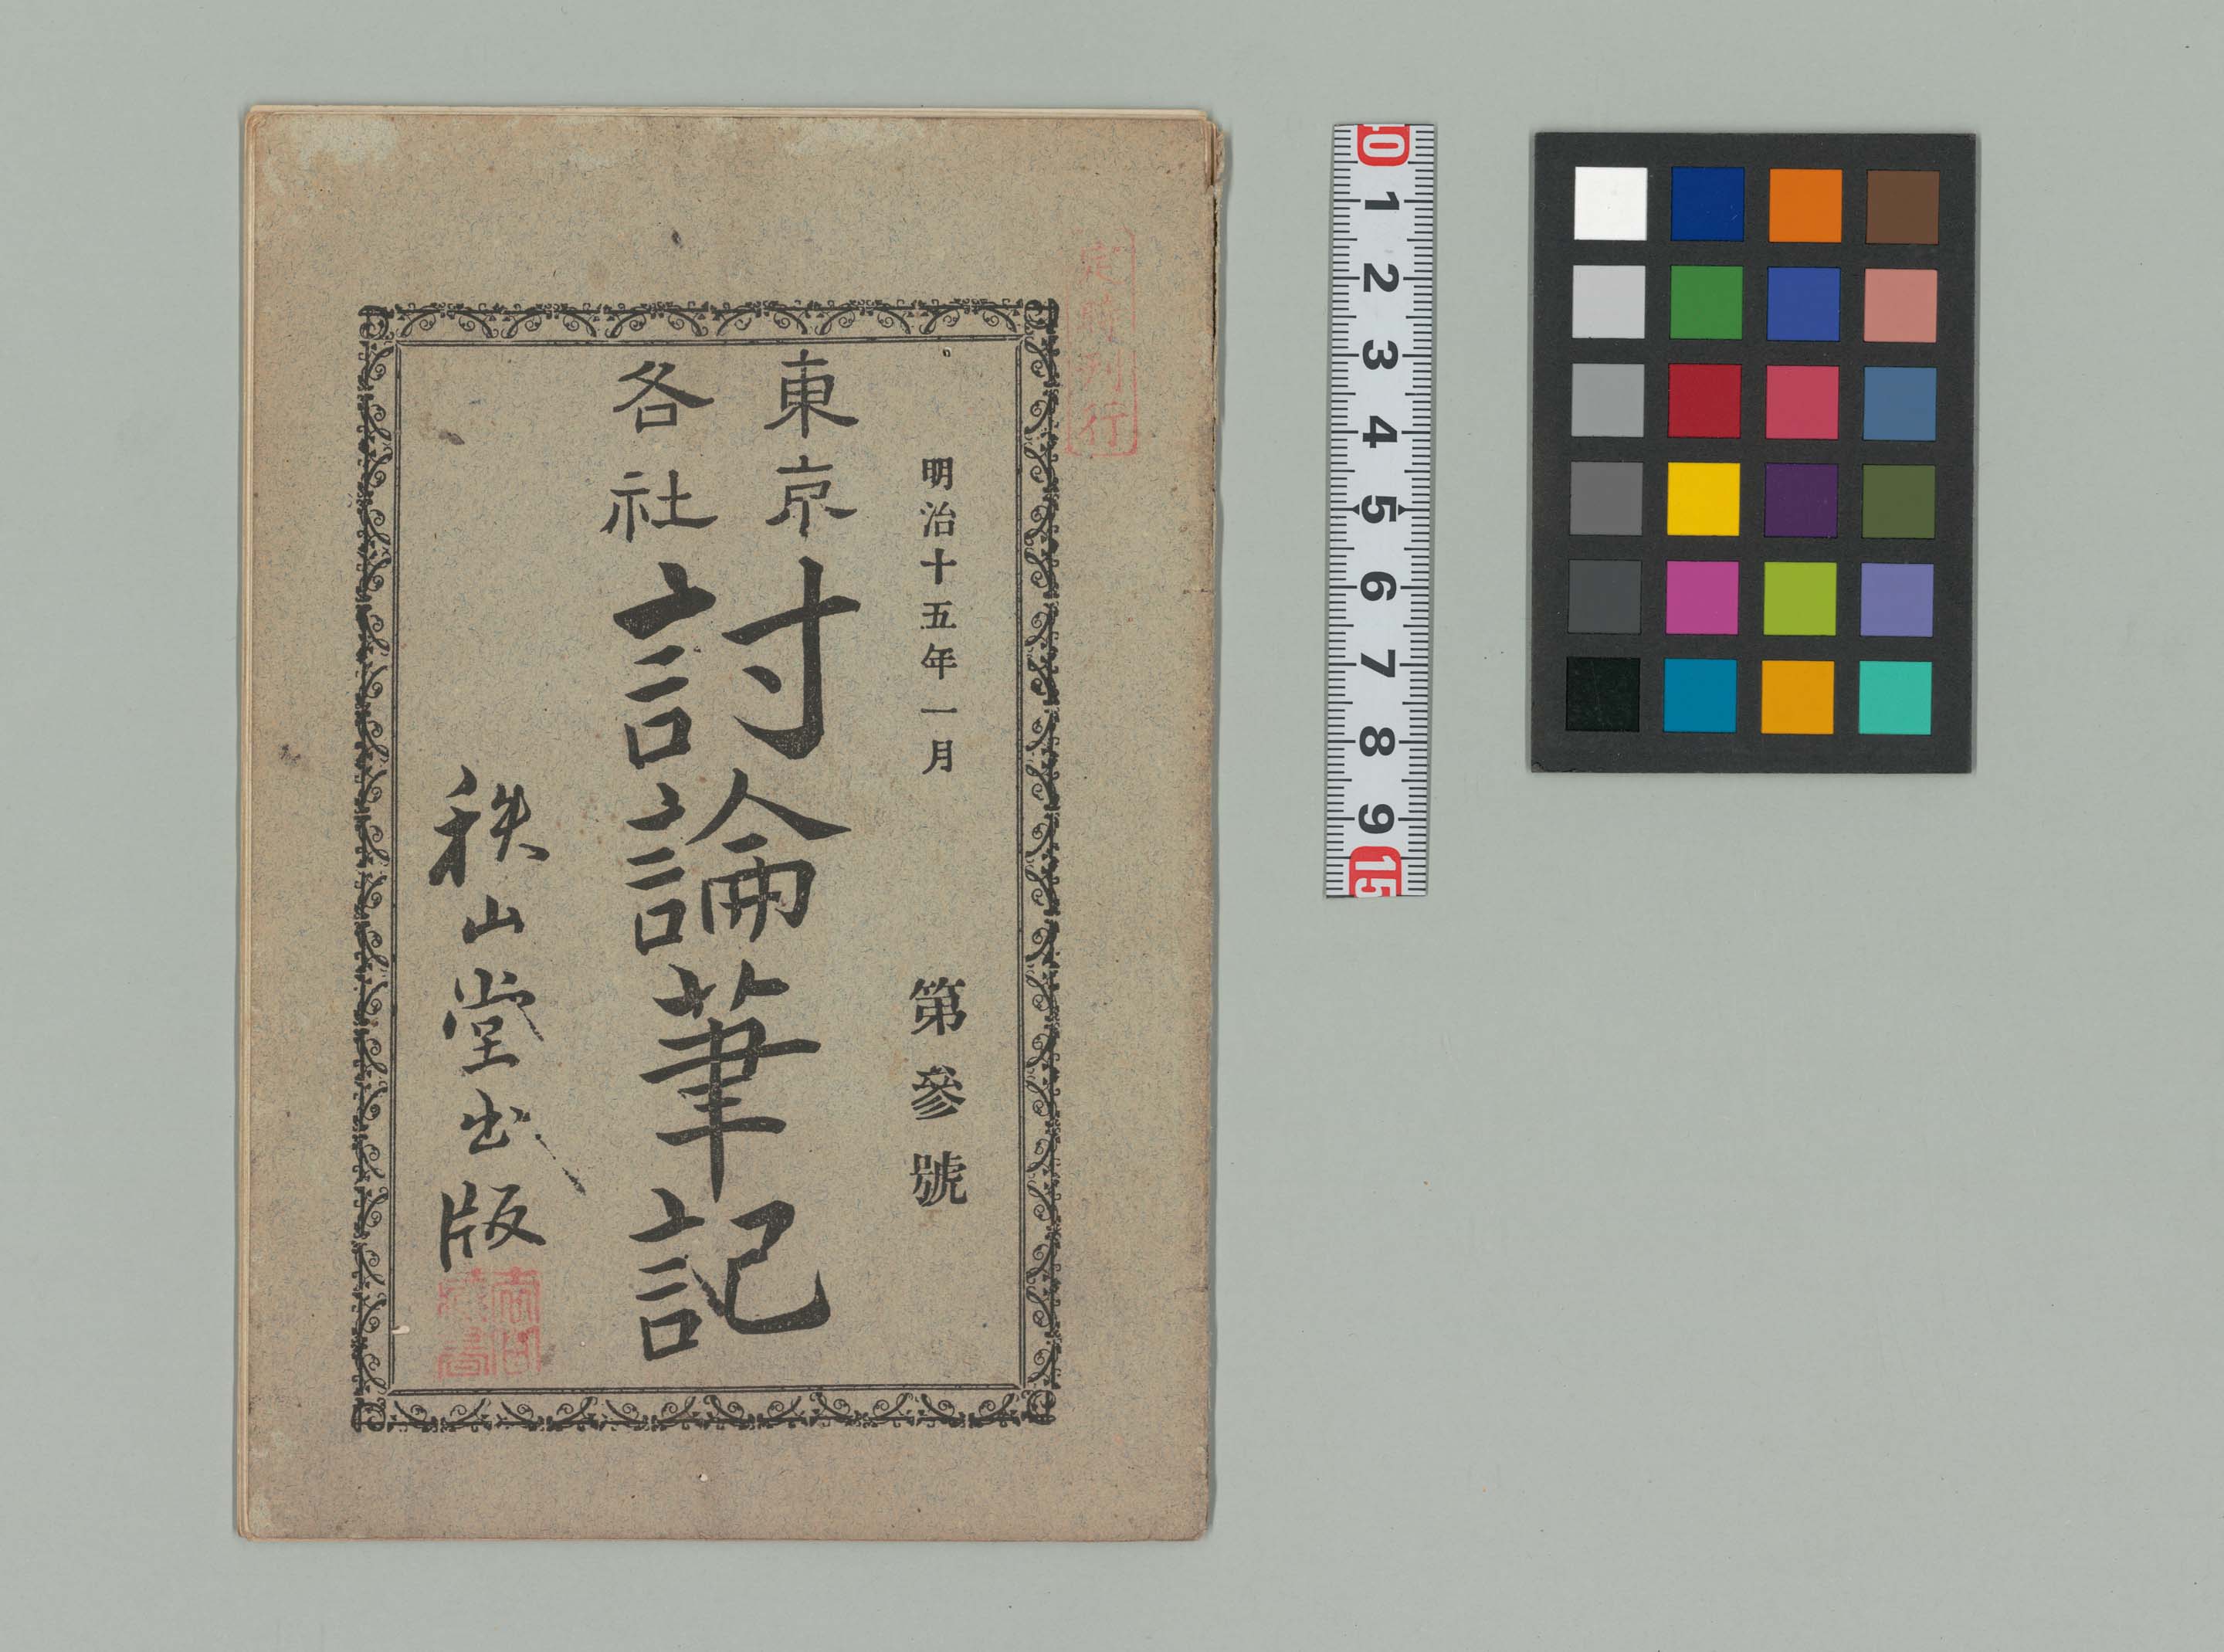 定時刊行
明治十五年一月 第參號
東京
各社
討論筆記
秩山堂出版
10 1 2 3 4 5 6 7 8 9 15